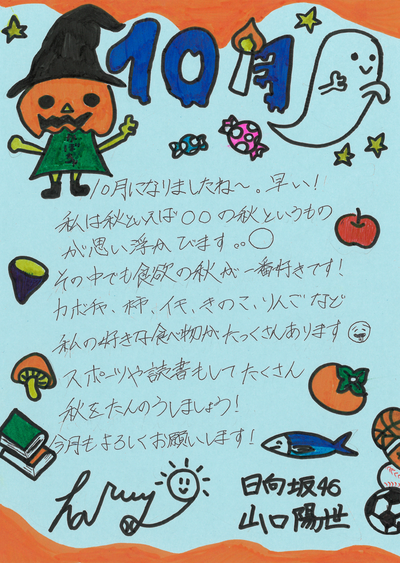 10月
10月になりましたね〜。早い!
私は秋といえば〇〇の秋というもの
が思い浮かびます。。〇
その中でも食欲の秋が一番好きです!
カボチャ、柿、イモ、きのこ、りんごなど
私の好きな食べ物がたっくさんあります
スポーツや読書もしてたくさん
秋をたんのうしましょう!
今月もよろしくお願いします!
日向坂46
山口陽世